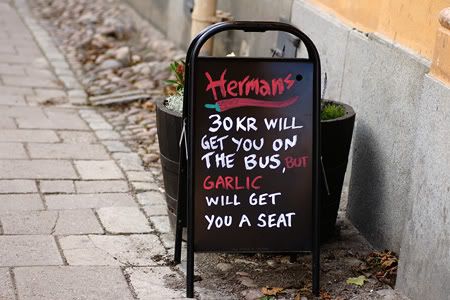 Hermans
30 KR WILL
GET YOU ON
THE BUS, BUT
GARLIC
WILL GET
YOU A SEAT